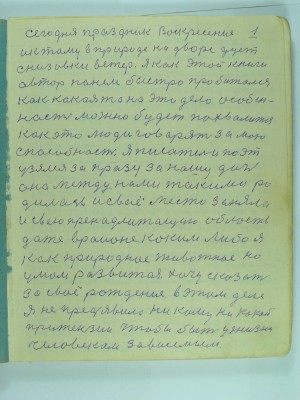 сегодня праздник Воскресение 1
истому в природе на дворе дует
снизовки ветер. Я как этой книги
автор пакем быстро пробатался
как какаята на это дело особен-
ность можно будет похвалится
как это люди говарят за мою
способность. Я писатель поэт
узялся за празу за нашу диж
она между нами такими ро
дилась и своё место заняла
и свою принадлижащую область
даже в районе каком либо я
как природное животное но
умом развитая хочу сказать
за своё рождение в этом деле
Я не предявлю ни кому ни какой
притензии чтобы быть в жизни
человекам зависемым.